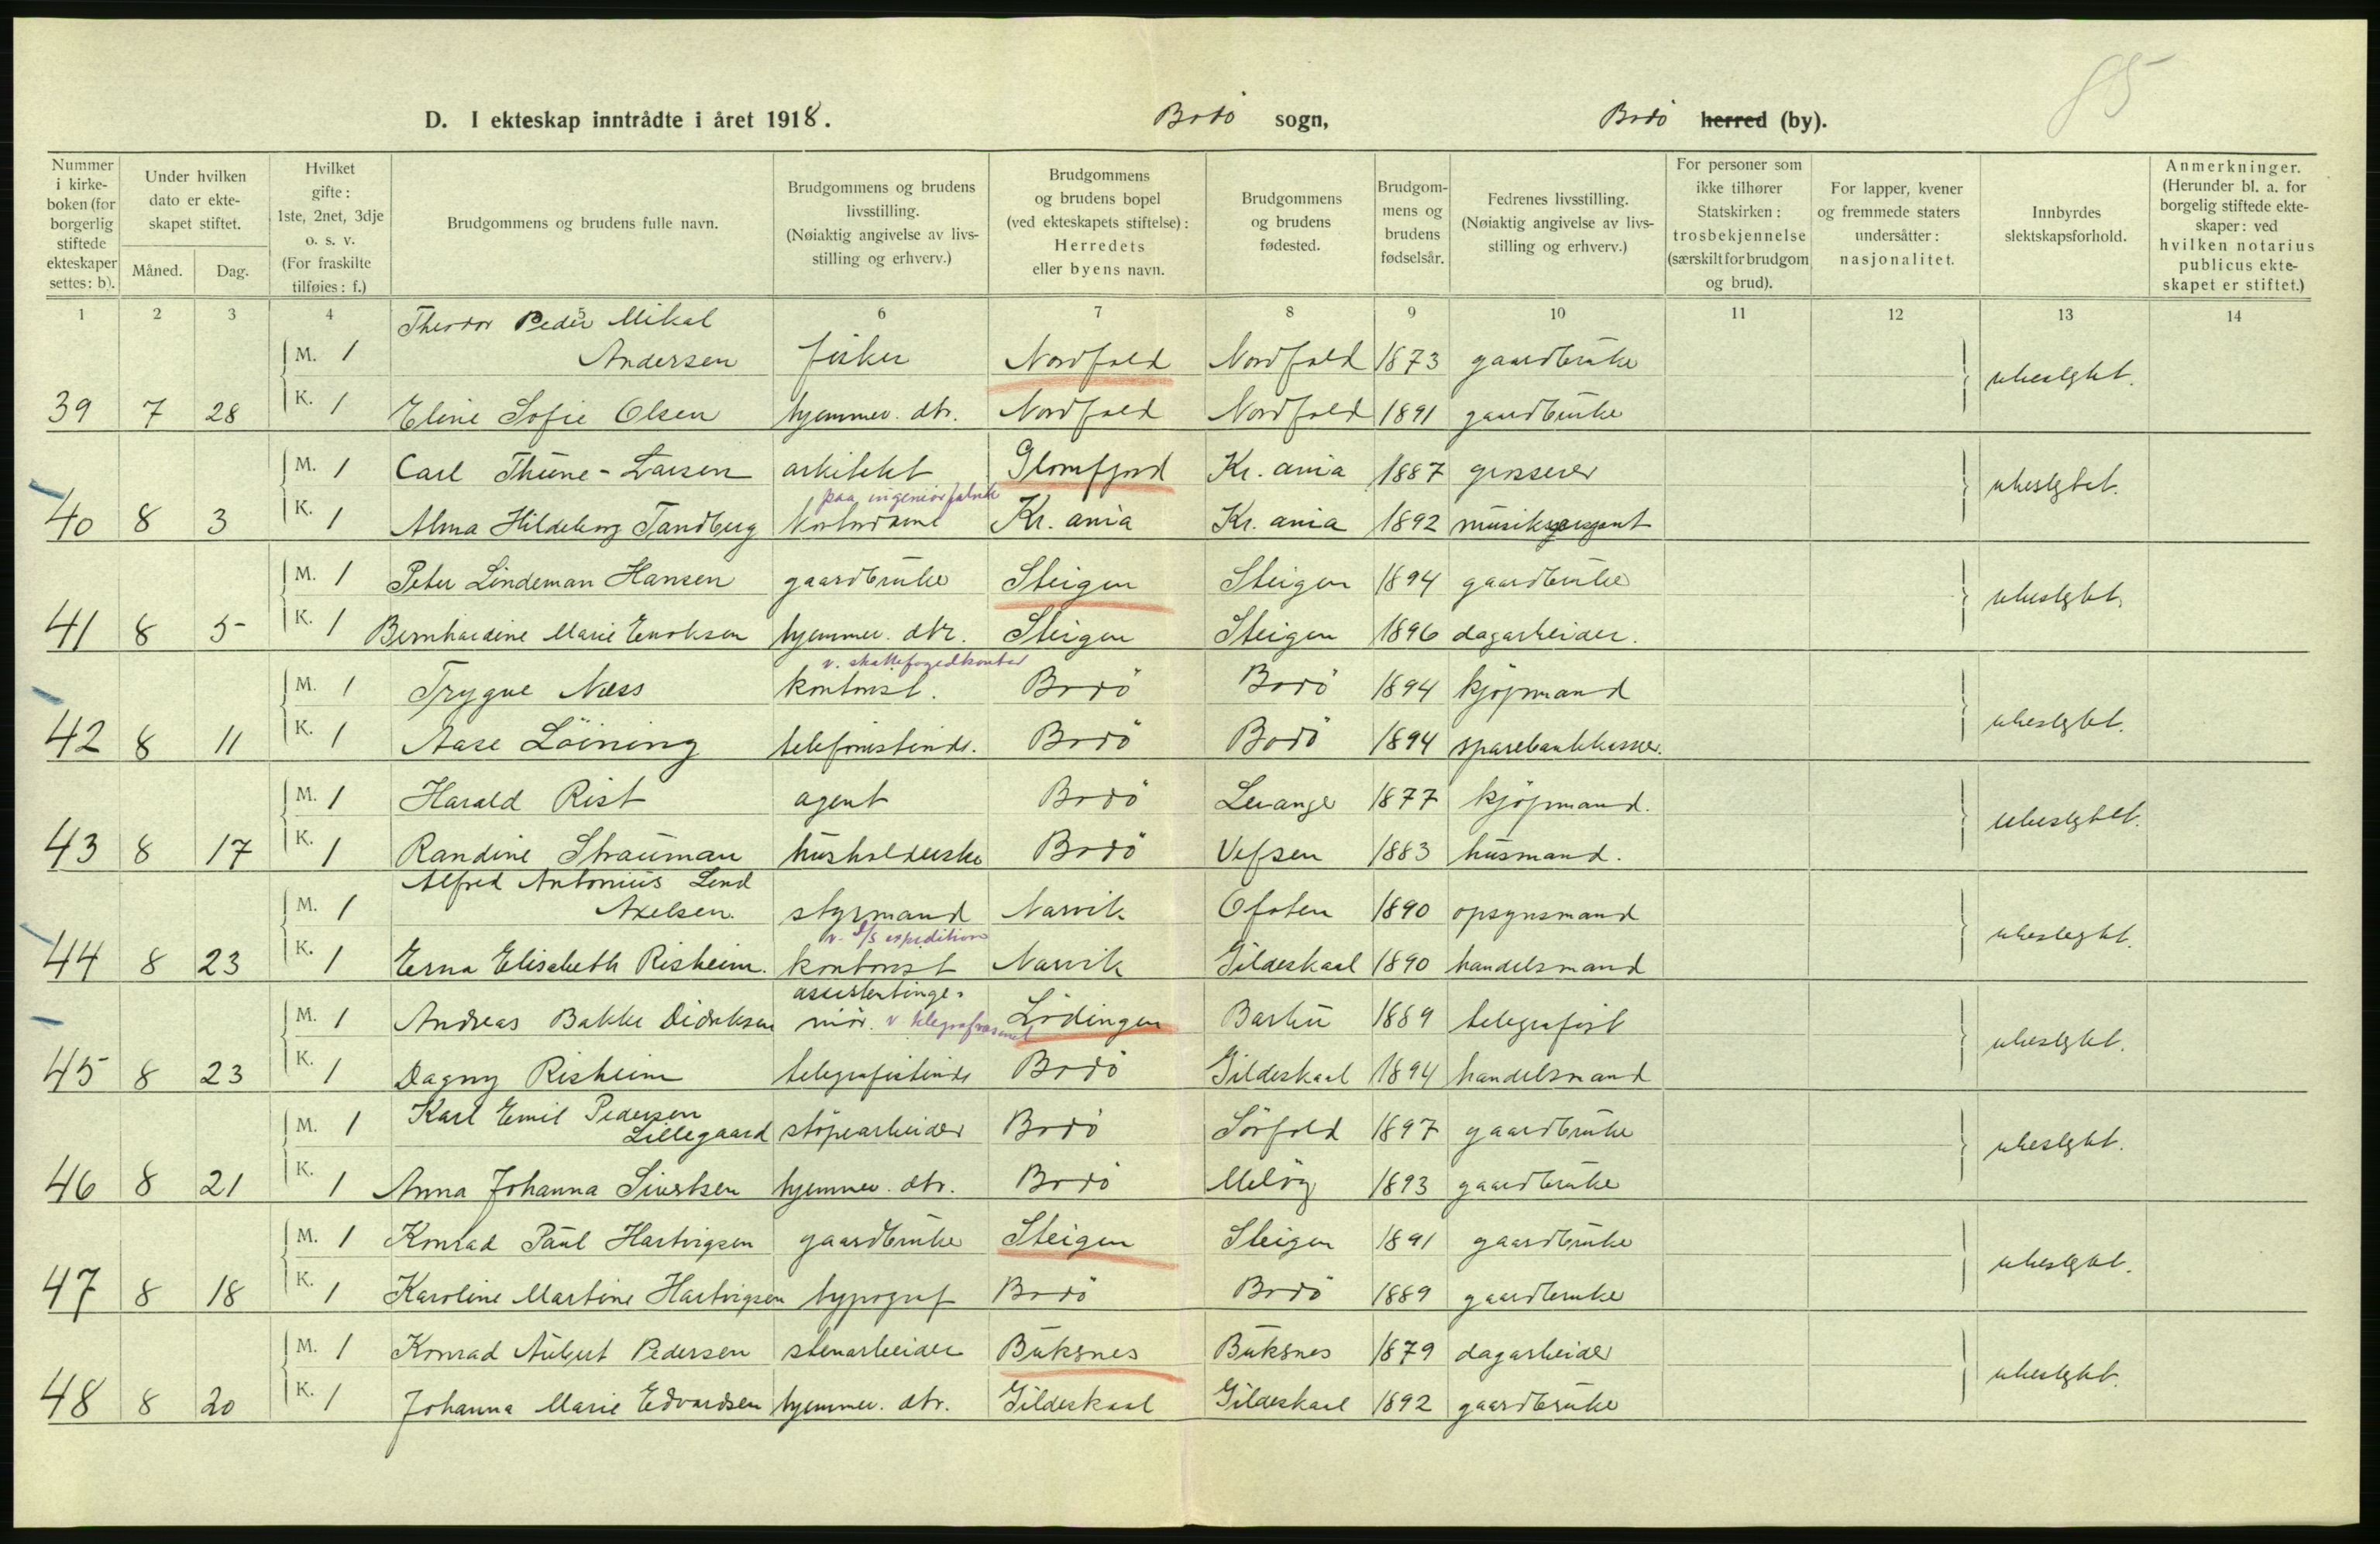 85
D. I ekteskap inntrådte i året 1918. Bodö sogn, Bodö herred (by).
Nummer i kirkeboken (for borgerlig stiftede ekteskaper settes: b).
Under hvilken dato er ekteskapet stiftet.
Måned. Dag.
Hvilket gifte: 1ste, 2net, 3dje o. s. v. (For fraskilte tilføies: f.)
Brudgommens og brudens fulle navn.
Brudgommens og brudens livsstilling. (Nøiaktig angivelse av livsstilling og erhverv.)
Brudgommens og brudens bopel (ved ekteskapets stiftelse): Herredets eller byens navn.
Brudgommens og brudens fødested.
Brudgommens og brudens fødselsår.
Fedrenes livsstilling. (Nøiaktig angivelse av livsstilling og erhverv.)
For personer som ikke tilhører Statskirken: trosbekjennelse (særskilt for brudgom og brud).
For lapper, kvener og fremmede staters undersåtter: nasjonalitet.
Innbyrdes slektskapsforhold.
Anmerkninger. (Herunder bl. a. for borgelig stiftede ekteskaper: ved hvilken notarius publicus ekteskapet er stiftet.)
1 2 3 4 6 7 8 9 10 11 12 13 14
Theodor Peder Mikal
M. 1 Andersen fisker Nordfold Nordfold 1873 gaardbruker
ubeslgtet.
39 7 28 K. 1 Eline Sofie Olsen hjemmev. dtr. Nordfold Nordfold 1891 gaardbruker
M. 1 Carl Thune-Larsen arkitekt Glomfjord Kr. ania 1887 grosserer
paa ingeniörfabrik
ubeslgtet.
40 8 3 K. 1 Alma Hildeborg Tandberg kontordame Kr. ania Kr. ania 1892 musiksersjant
M. 1 Peter Lindeman Hansen gaardbruker Steigen Steigen 1894 gaardbruker
ubeslgtet.
41 8 5 K. 1 Bernhardine Marie Enoksen hjemmev. dtr. Steigen Steigen 1896 dagarbeider.
v. skattefogedkontor
M. 1 Trygve Næss kontorist. Bodö Bodö 1894 kjöpmand
ubeslgtet.
42 8 11 K. 1 Aase Löining telefonistinde. Bodö Bodö 1894 sparebankkasser.
M. 1 Harald Rist agent Bodö Levanger 1877 kjöpmand.
ubeslgtet.
43 8 17 K. 1 Randine Strauman husholderske Bodö Vefsen 1883 husmand.
Alfred Antonius Lind
M. 1 Axelsen. styrmand Narvik Ofoten 1890 opsynsmand
v. D/S expedition
ubeslegtet.
44 8 23 K. 1 Erna Elisabeth Risheim. kontorist Narvik Gildeskaal 1890 handelsmand
assistentinge-
M. 1 Andreas Bakke Didriksen niör. v telegrafvæsenet Lödingen Bardu 1889 telegrafist
ubeslgtet.
45 8 23 K. 1 Dagny Risheim telegrafistinde Bodö Gildeskaal 1894 handelsmand
Karl Emil Pedersen
M. 1 Lillegaard stöpearbeider Bodö Sörfold 1897 gaardbruker
ubeslgtet.
46 8 21 K. 1 Anna Johanna Sivertsen hjemmev. dtr. Bodö Melöy 1893 gaardbruker
M. 1 Konrad Paul Hartvigsen gaardbruker Steigen Steigen 1891 gaardbruker
ubeslgtet.
47 8 18 K. 1 Karoline Martine Hartvigsen typograf Bodö Bodö 1889 gaardbruker
M. 1 Konrad Aubert Pedersen stenarbeider Buksnes Buksnes 1879 dagarbeider
ubeslgtet.
48 8 20 K. 1 Johanna Marie Edvardsen hjemmev. dtr. Gildeskaal Gildeskaal 1892 gaardbruker